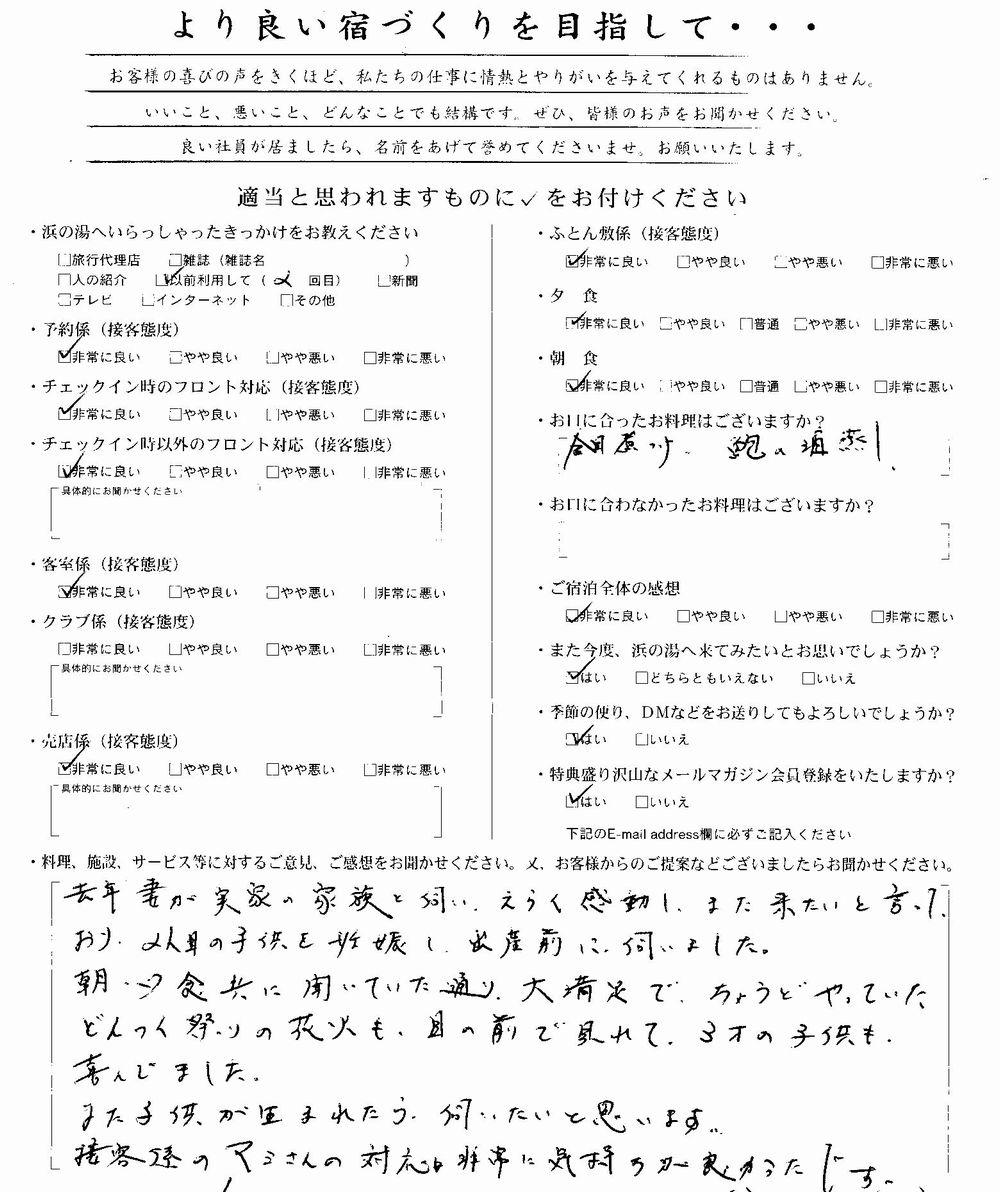 より良い宿づくりを目指して・・・
お客様の喜びの声をきくほど、私たちの仕事に情熱とやりがいを与えてくれるものはありません。
いいこと、悪いこと、どんなことでも結構です。ぜひ、皆様のお声をお聞かせください。
良い社員が居ましたら、名前をあげて誉めてくださいませ。お願いいたします。
適当と思われますものに✓をお付けください
・浜の湯へいらっしゃったきっかけをお教えください
□旅行代理店 □雑誌（雑誌名 ）
□人の紹介 ☑以前利用して（ 2 回目） □新聞
□テレビ □インターネット □その他
・予約係（接客態度）
☑非常に良い □やや良い □やや悪い □非常に悪い
・チェックイン時のフロント対応（接客態度）
☑非常に良い □やや良い □やや悪い □非常に悪い
・チェックイン時以外のフロント対応（接客態度）
☑非常に良い □やや良い □やや悪い □非常に悪い
具体的にお聞かせください
・客室係（接客態度）
☑非常に良い □やや良い □やや悪い □非常に悪い
・クラブ係（接客態度）
□非常に良い □やや良い □やや悪い □非常に悪い
具体的にお聞かせください
・売店係（接客態度）
☑非常に良い □やや良い □やや悪い □非常に悪い
具体的にお聞かせください
・ふとん敷係（接客態度）
☑非常に良い □やや良い □やや悪い □非常に悪い
・夕 食
☑非常に良い □やや良い □普通 □やや悪い □非常に悪い
・朝 食
☑非常に良い □やや良い □普通 □やや悪い □非常に悪い
・お口に合ったお料理はございますか？
金目煮つけ、鮑の酒蒸し、
・お口に合わなかったお料理はございますか？
・ご宿泊全体の感想
☑非常に良い □やや良い □やや悪い □非常に悪い
・また今度、浜の湯へ来てみたいとお思いでしょうか？
☑はい □どちらともいえない □いいえ
・季節の便り、DMなどをお送りしてもよろしいでしょうか？
☑はい □いいえ
・特典盛り沢山なメールマガジン会員登録をいたしますか？
☑はい □いいえ
下記のE-mail address欄に必ずご記入ください
・料理、施設、サービス等に対するご意見、ご感想をお聞かせください。又、お客様からのご提案などございましたらお聞かせください。
去年妻が実家の家族と伺い、えらく感動し、また来たいと言って
おり、2人目の子供を妊娠し、出産前に、伺いました。
朝・夕食共に聞いていた通り、大満足で、ちょうどやっていた
どんつく祭りの花火も、目の前で見れて、3才の子供も、
喜んでました。
また子供が生まれたら、伺いたいと思います。
接客係のマミさんの対応も非常に気持ちが良かったです。